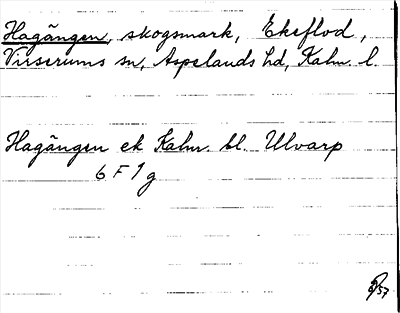 Hagängen, skogsmark, Ekeflod,
Virserums sn, Aspelands hd, Kalm. l.
Hagängen ek Kalm. bl. Ulvarp
6 F 1 g